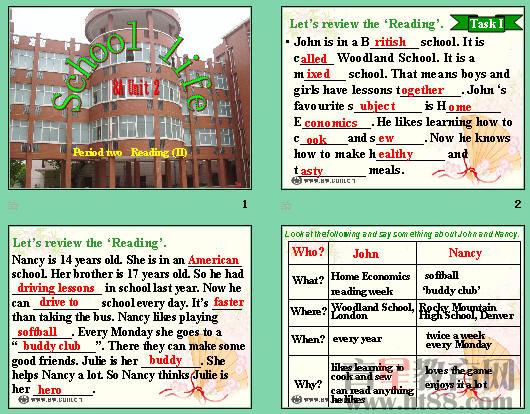 School life
8A Unit 2
Period two Reading (II)
1
Let's review the 'Reading'.
Task I
• John is in a British school. It is
called Woodland School. It is a
mixed school. That means boys and
girls have lessons together. John 's
favourite subject is Home
Economics. He likes learning how to
cook and sew. Now he knows
how to make healthy and
tasty meals.
2
Let's review the 'Reading'.
Nancy is 14 years old. She is in an American
school. Her brother is 17 years old. So he had
driving lessons in school last year. Now he
can drive to school every day. It's faster
than taking the bus. Nancy likes playing
softball. Every Monday she goes to a
"buddy club". There they can make some
good friends. Julie is her buddy. She
helps Nancy a lot. So Nancy thinks Julie is
her hero.
3
Look at the following and say something about John and Nancy.
Who? John Nancy
What? Home Economics reading week softball 'buddy club'
Where? Woodland School, London Rocky Mountain High School, Denver
When? every year twice a week every Monday
Why? likes learning to cook and sew can read anything he likes loves the game enjoys it a lot
4